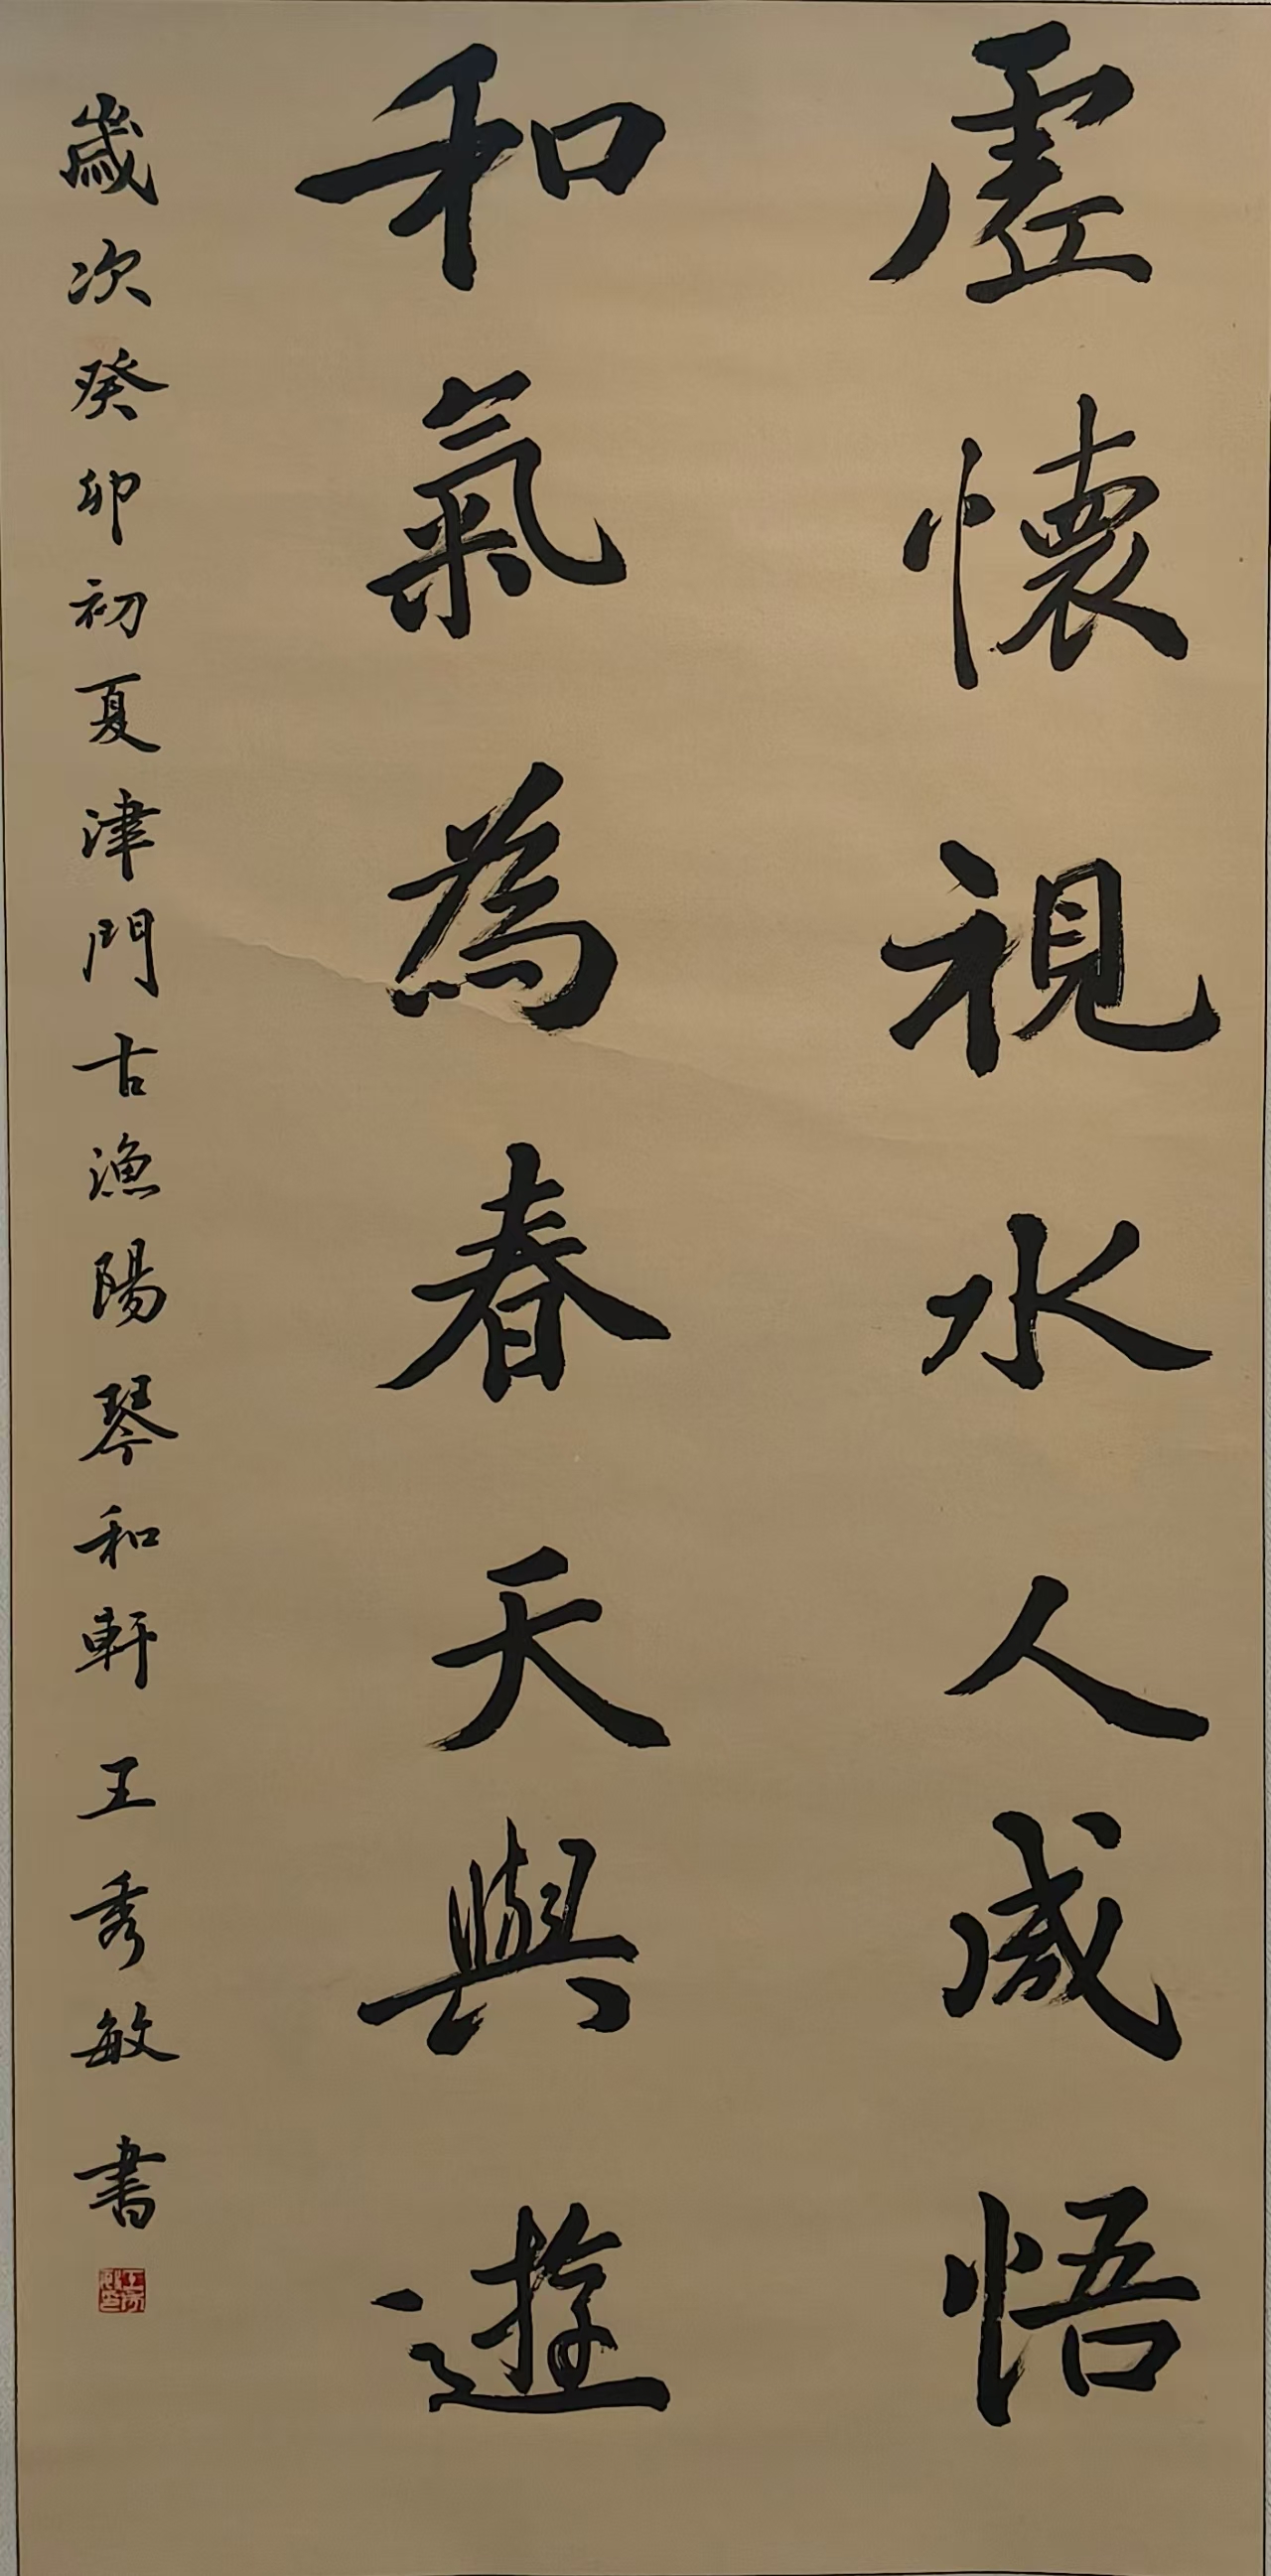 虛懷視水人咸悟
和氣為春天與遊
歲次癸卯初夏津門古漁陽琴和軒王秀敏書